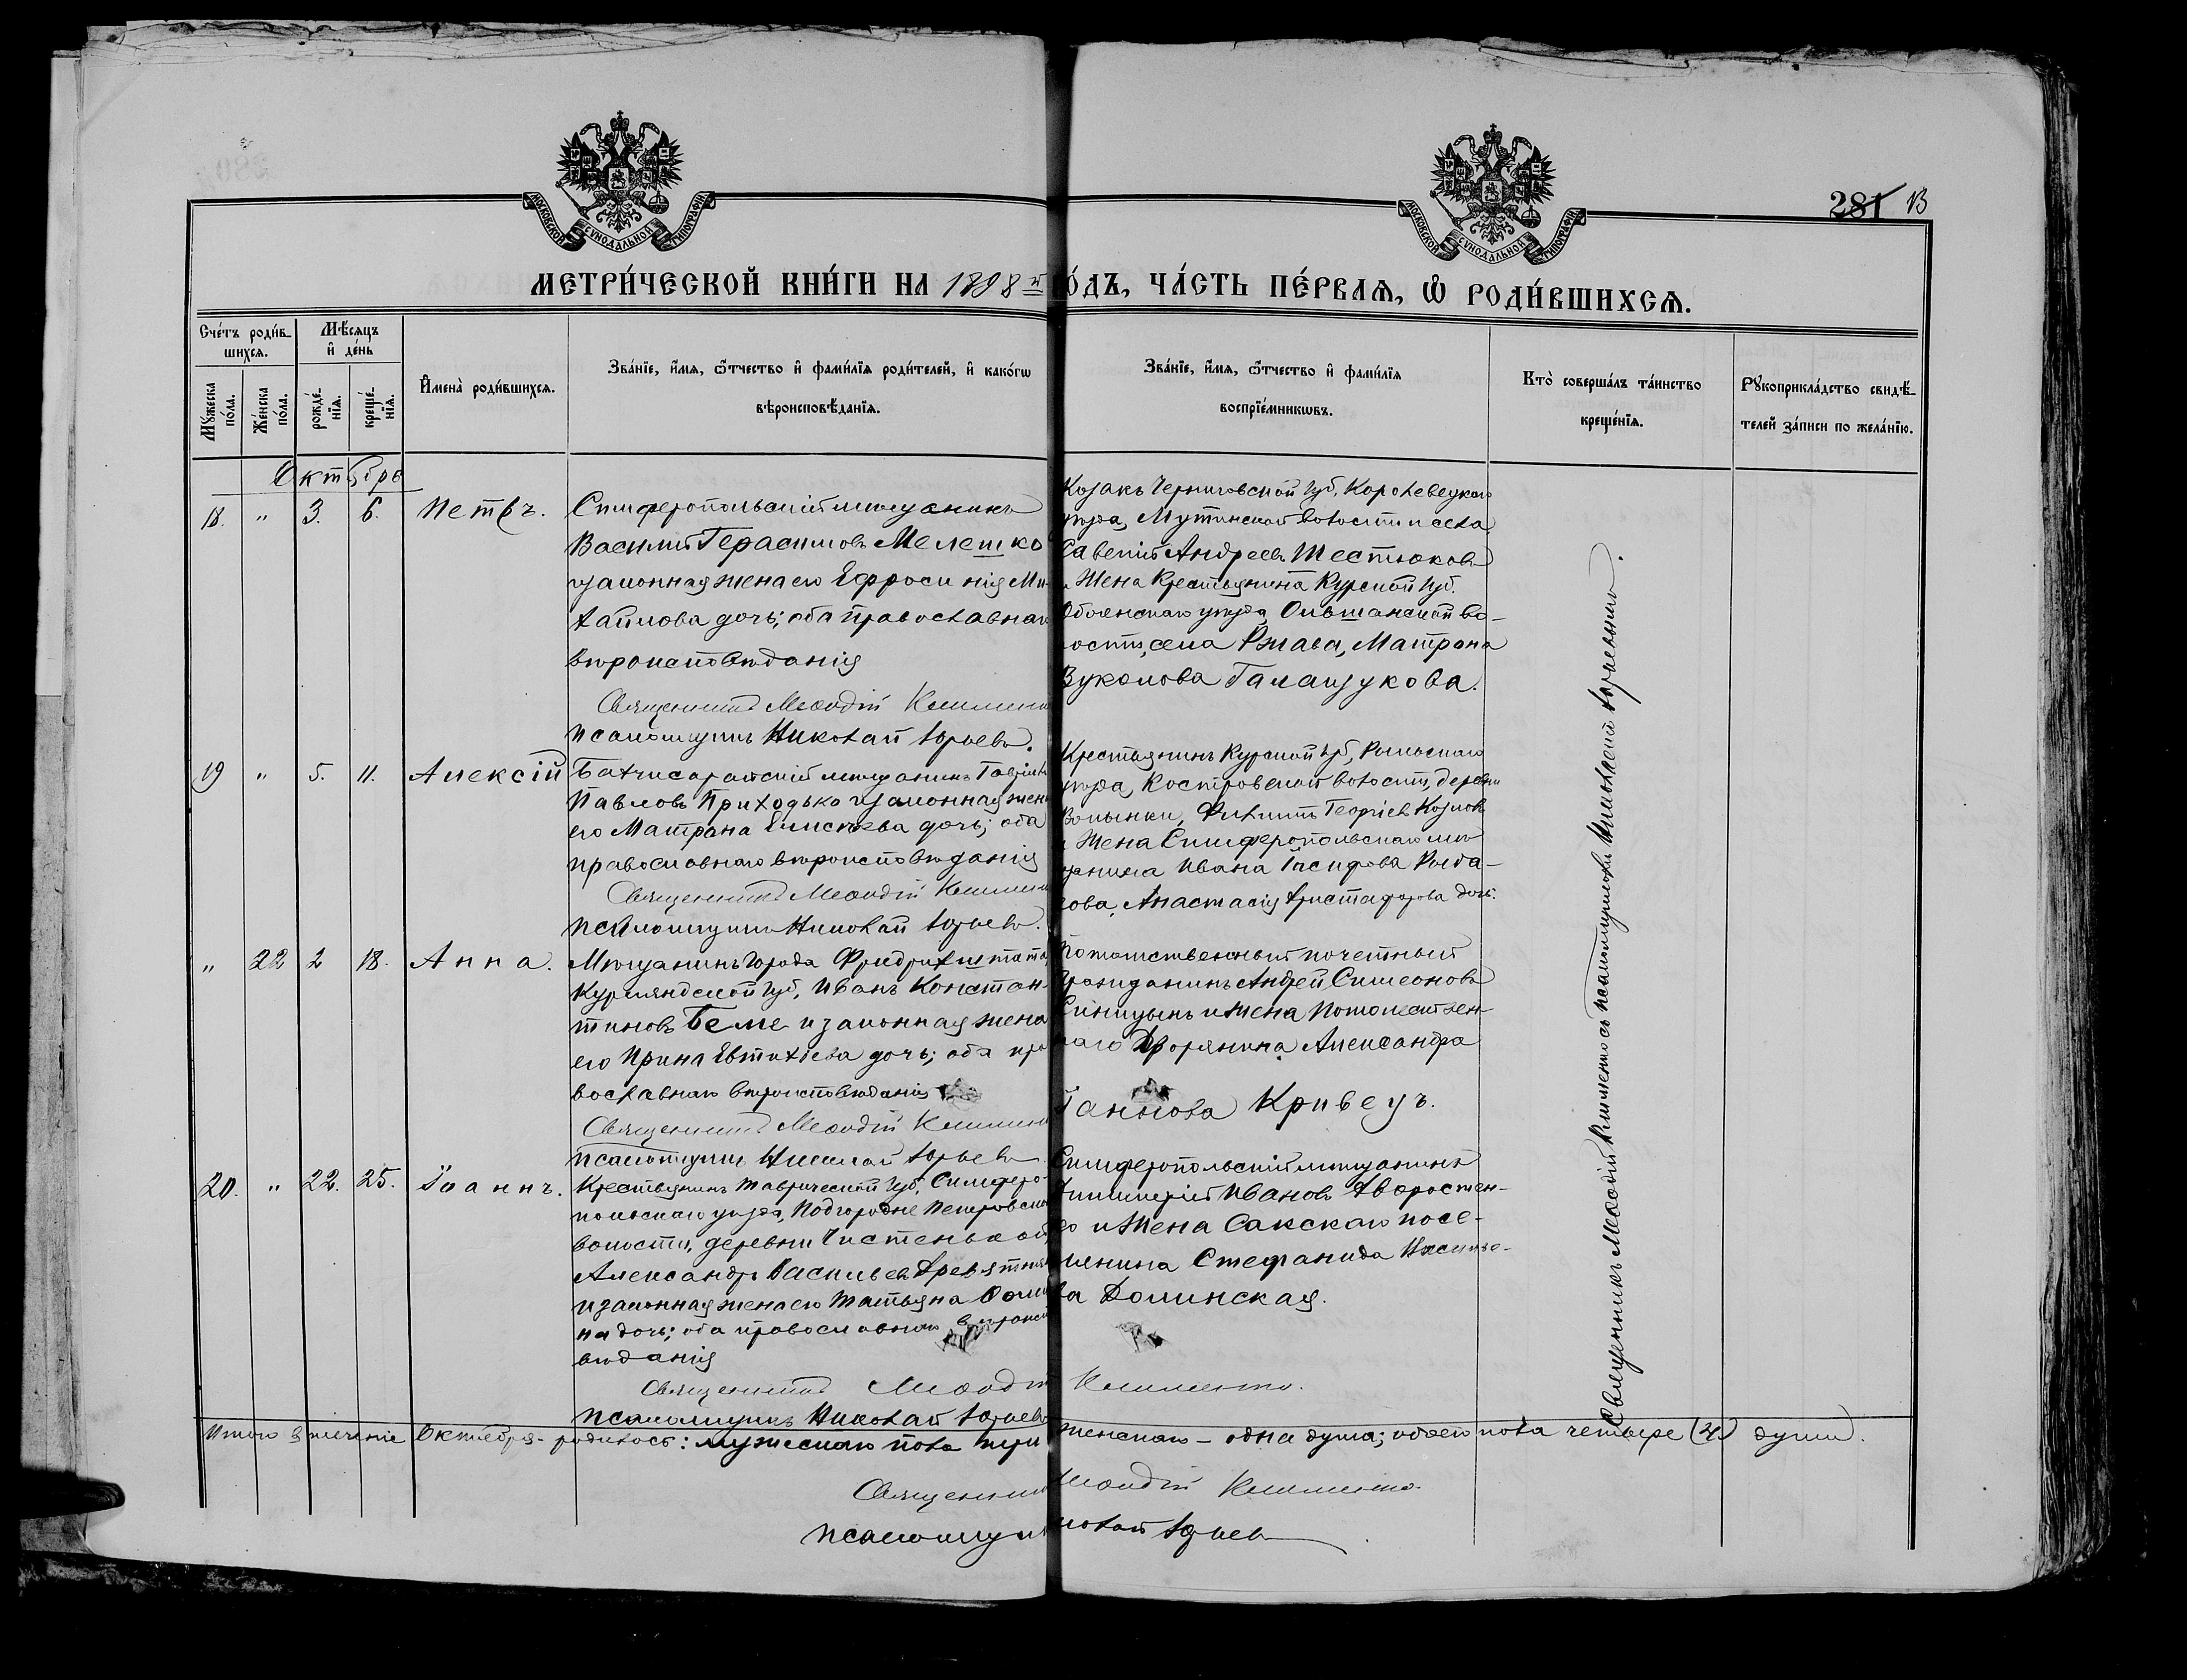 МОСКОВСКОЙ СѴНОДАЛЬНОЙ ТИПОГРАФІИ
МОСКОВСКОЙ СѴНОДАЛЬНОЙ ТИПОГРАФІИ
281 13
МЕТРИ́ЧЕСКОЙ КНИ́ГИ НА 1898 й
О́ДЪ, ЧА́СТЬ ПЕ́РВАѦ, Ѡ҆ РОДИ́ВШИХСѦ.
Сче́тъ роди́в-
шихсѧ.
Мѣ́сѧцъ
и҆ де́нь
Мꙋ́жеска
по́ла.
Же́нска
по́ла.
рожде́-
нїѧ.
креще́-
нїѧ.
И҆мена̀ роди́вшихсѧ.
Зва́нїе, и҆́мѧ, ѻ҆́тчество и҆ фами́лїѧ роди́телей, и҆ како́гѡ
вѣроисповѣ́данїѧ.
Зва́нїе, и҆́мѧ, ѻ҆́тчество и҆ фами́лїѧ
воспрїе́мникѡвъ.
Кто̀ соверша́лъ та́инство
креще́нїѧ.
Рꙋкоприкла́дство свидѣ́-
телей за́писи по жела́нїю.
Октябрь
18. " 3. 6. Петръ.
Симферопольскій мѣщанинъ
Василий Герасимовъ Мелешко
законная жена его Ефросинія Ми-
хайлова дочь; оба православнаго
вѣроисповѣданія
Священникъ Меѳодій Клименко
псаломщикъ Николай Юрьевъ.
Козакъ Черниговской губ, Кролевецкаго
уѣзда, Мутинской волости и села
Савелій Андреевъ Шестюковъ
Жена Крестьянина Курской губ.
Обоянскаго уѣзда, Ольшанской во-
лости, села Ржава, Матрона
Вуколова Галащукова.
19 " 5. 11. Алексій
Бахчисарайскій мѣщанинъ Гавріилъ
Павловъ Приходько и законная жена
его Матрона Елисѣева дочь; оба
православнаго вѣроисповѣданія
Священникъ Меѳодій Клименко
псаломщикъ Николай Юрьевъ.
Крестьянинъ Курской губ, Рыльскаго
уѣзда, Костровской волости, деревни
Волынки, Филиппъ Георгіевъ Козловъ
Жена Симферопольскаго мѣ-
щанина Ивана
Анастасія Христофорова дочь.
" 22 2 18. Анна.
Мѣщанинъ города Фридрихштата,
Курляндской губ, Иванъ Констан-
тиновъ Беме и законная жена
его Ирина Евтихіева дочь; оба пра
вославнаго вѣроисповѣданія
Священникъ Меѳодій Клименко
псаломщикъ Николай Юрьевъ
Потомственный почетный
гражданинъ Андрей Симеоновъ
Синицынъ и жена потомствен-
наго Дворянина Александра
Кривецъ.
20. " 22. 25. Іоаннъ.
Крестьянинъ Таврической губ, Симферо-
польскаго уѣзда, Подгородне Петровской
волости, деревни Чистенькой,
Александръ Васильевъ
и законная жена его Татьяна
на дочь; оба православнаго вѣроиспо
вѣданія
Священникъ Меѳодій Клименко.
псаломщикъ Николай Юрьевъ
Симферопольскій мѣщанинъ
Димитрій Ивановъ Хворостен-
ко и жена Сакскаго посе-
лянина Стефанида
ва Долинская.
Священникъ Меѳодій Клименко съ псаломщикомъ Николаемъ Юрьевымъ.
Итого въ теченіе Октября родилось: мужескаго пола три женскаго - одна душа; обоего пола четыре (4) души.
Священникъ Меѳодій Клименко.
псаломщикъ Николай Юрьевъ